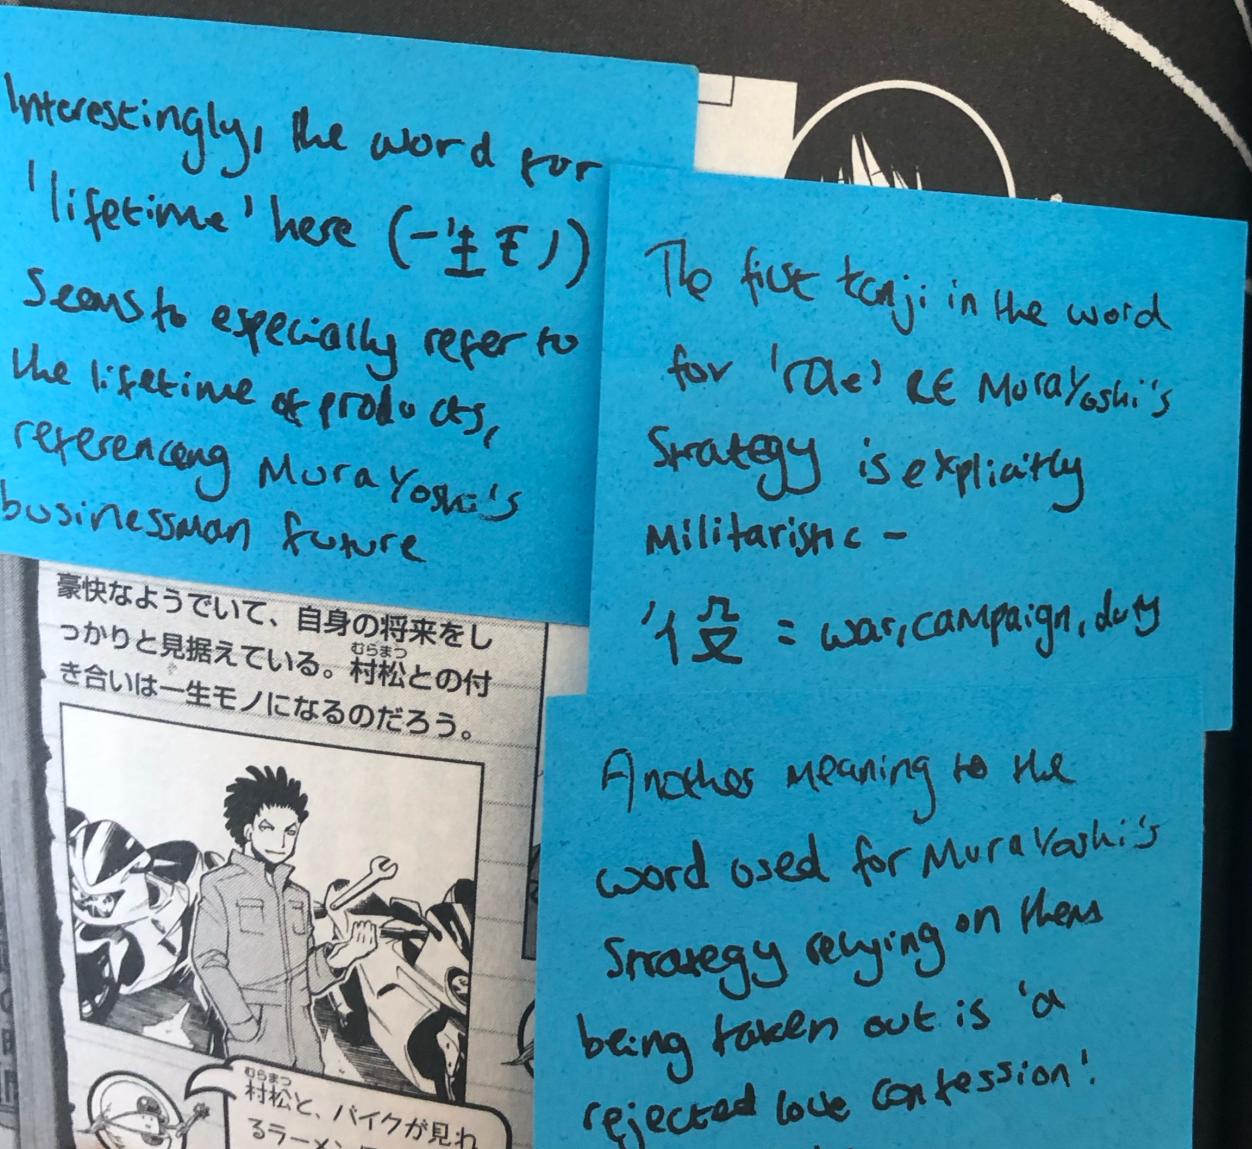 Interestingly, the word for
'lifetime' here (一生モノ)
seems to especially refer to
the lifetime of products,
referencing MuraYoshi's
businessman future
The first kanji in the word
for 'role' RE MuraYoshi's
Strategy is explicitly
Militaristic -
'役 = war, campaign, duty
Another meaning to the
word used for MuraYoshi's
Strategy relying on them
being taken out is 'a
rejected love confession'.
豪快なようでいて、自身の将来をし
っかりと見据えている。村松との付
むらまつ
き合いは一生モノになるのだろう。
むらまつ
村松と、バイクが見れ
るラーメン